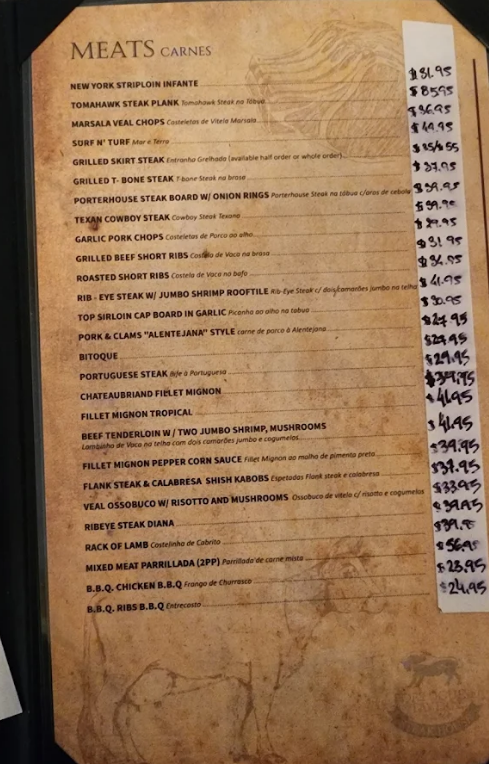 MEATS CARNES
NEW YORK STRIPLOIN INFANTE $31.95
TOMAHAWK STEAK PLANK Tomahawk Steak na Tábua $85.95
MARSALA VEAL CHOPS Costeletas de Vitela Marsala $36.95
SURF N' TURF Mar e Terra $44.95
GRILLED SKIRT STEAK Entranha Grelhada (available half order or whole order)
GRILLED T- BONE STEAK T-bone Steak na brasa $37.95
PORTERHOUSE STEAK BOARD W/ ONION RINGS Porterhouse Steak na tábua c/aros de cebola $39.95
TEXAN COWBOY STEAK Cowboy Steak Texano $39.95
GARLIC PORK CHOPS Costeletas de Porco ao alho $29.95
GRILLED BEEF SHORT RIBS Costela de Vaca na brasa $31.95
ROASTED SHORT RIBS Costela de Vaca no bafo $34.95
RIB - EYE STEAK W/ JUMBO SHRIMP ROOFTILE Rib-Eye Steak c/ dois camarões jumbo na telha $41.95
TOP SIRLOIN CAP BOARD IN GARLIC Picanha ao alho na tábua $30.95
PORK & CLAMS "ALENTEJANA" STYLE carne de porco à Alentejana $27.95
BITOQUE $27.95
PORTUGUESE STEAK Bife à Portuguesa $29.95
CHATEAUBRIAND FILLET MIGNON $39.95
FILLET MIGNON TROPICAL $41.95
BEEF TENDERLOIN W / TWO JUMBO SHRIMP, MUSHROOMS $41.95
Lombinho de Vaca na telha com dois camarões jumbo e cogumelos
FILLET MIGNON PEPPER CORN SAUCE Fillet Mignon ao molho de pimenta preta $39.95
FLANK STEAK & CALABRESA SHISH KABOBS Espetadas Flank steak e calabresa $37.95
VEAL OSSOBUCO W/ RISOTTO AND MUSHROOMS Ossobuco de vitela c/ risotto e cogumelos $33.95
RIBEYE STEAK DIANA $39.95
RACK OF LAMB Costelinha de Cabrito
MIXED MEAT PARRILLADA (2PP) Parrillada de carne mista $56.95
B.B.Q. CHICKEN B.B.Q Frango de Churrasco $23.95
B.B.Q. RIBS B.B.Q Entrecosto $24.95